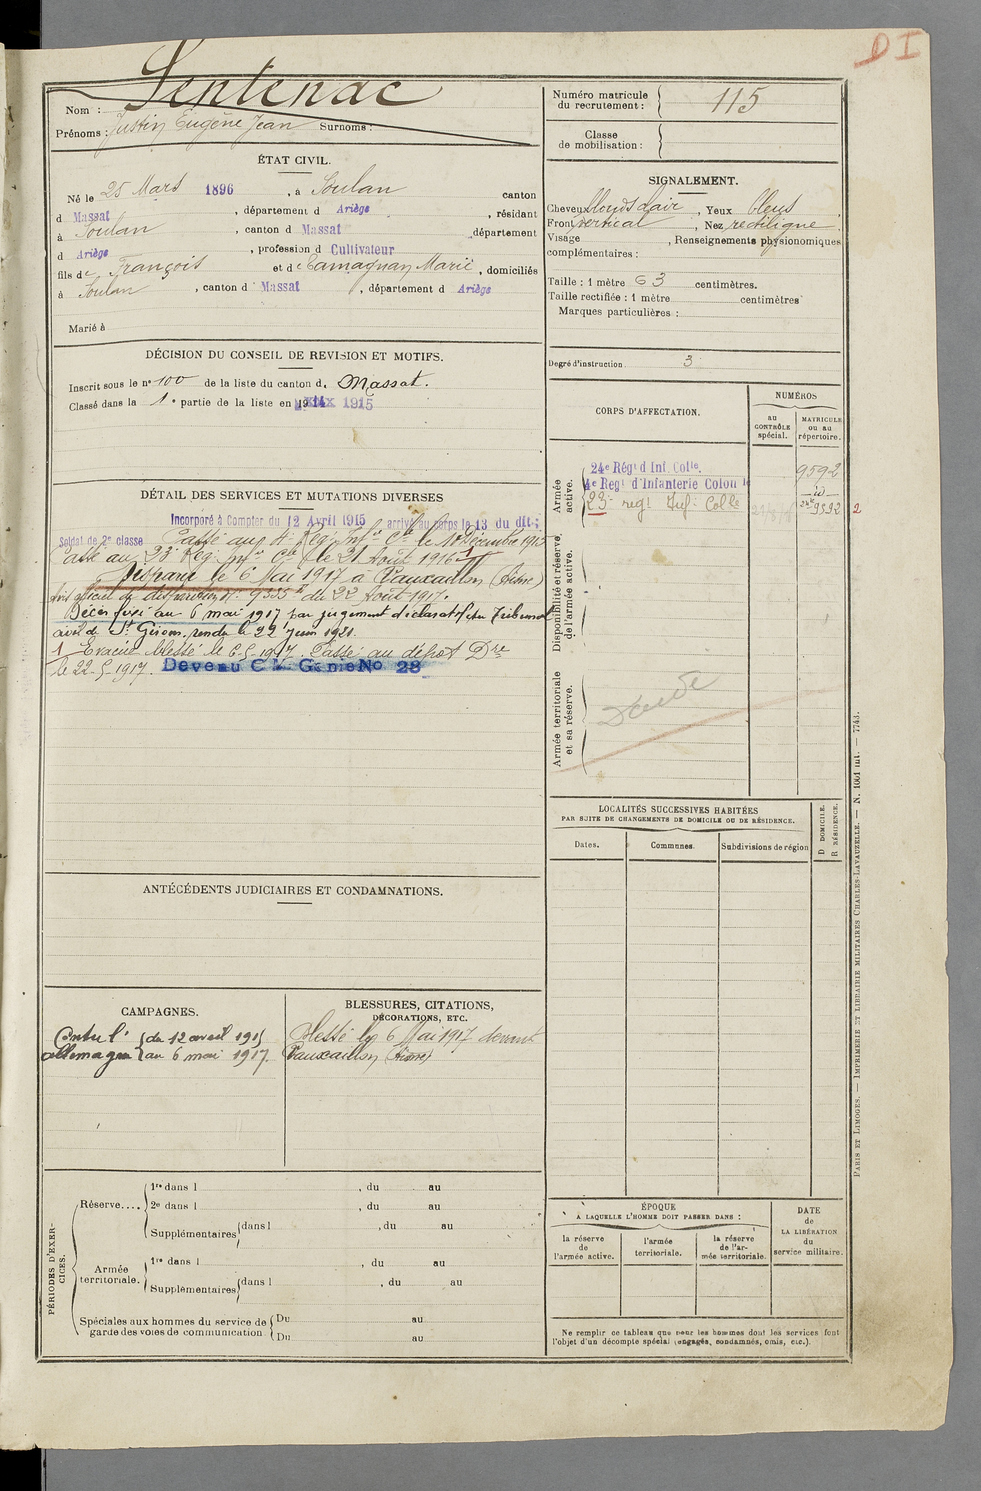 DI
Sentenac
Nom :
Prénoms : Justin Eugène Jean Surnoms :
Numéro matricule du recrutement : 115
Classe de mobilisation :
ÉTAT CIVIL.
Né le 25 Mars 1896, à Soulan canton
d Massat, département d Ariège, résidant
à Soulan, canton d Massat département
d Ariège, profession d Cultivateur
fils de François et de Tamagnan Marie, domiciliés
à Soulan, canton d Massat, département d Ariège
Marié à
SIGNALEMENT.
Cheveux blonds clair, Yeux bleus
Front vertical, Nez rectiligne
Visage , Renseignements physionomiques
complémentaires :
Taille : 1 mètre 63 centimètres.
Taille rectifiée : 1 mètre centimètres
Marques particulières :
Degré d'instruction 3
DÉCISION DU CONSEIL DE REVISION ET MOTIFS.
Inscrit sous le nº 100 de la liste du canton d. Massat.
Classé dans la 1e partie de la liste en 1915
DÉTAIL DES SERVICES ET MUTATIONS DIVERSES
Incorporé à Compter du 12 Avril 1915 arrivé au corps le 13 du dit;
Soldat de 2e classe Passé au 4e Rég. Infie Cle le 10 Décembre 1915
Passé au 23e Rég. Infie Cle le 21 Août 1916
Disparu le 6 Mai 1917 à Vauxaillon (Aisne)
Avis officiel de disparition Nº 9355 du 22 Août 1917.
Décès fixé au 6 mai 1917 par jugement déclaratif du Tribunal
civil de St Girons, rendu le 22 Juin 1921.
1 Evacué blessé le 6-5-1917. Passé au dépot Dre
le 22-5-1917. Devenu C Génie No 28
CORPS D'AFFECTATION.
NUMÉROS
au CONTRÔLE spécial.
MATRICULE ou au répertoire.
Armée active.
24e Régt d Inf. Colle. 9592
4e Regt d'Infanterie Colon le — id —
23e regt Inf. Colle 9392 2
Disponibilité et réserve de l'armée active.
Armée territoriale et sa réserve.
LOCALITÉS SUCCESSIVES HABITÉES
PAR SUITE DE CHANGEMENTS DE DOMICILE OU DE RÉSIDENCE.
Dates.
Communes.
Subdivisions de région
D. DOMICILE.
R. RÉSIDENCE.
ANTÉCÉDENTS JUDICIAIRES ET CONDAMNATIONS.
CAMPAGNES.
Contre l' { du 12 avril 1915
allemagne { au 6 mai 1917.
BLESSURES, CITATIONS,
DÉCORATIONS, ETC.
Blessé le 6 Mai 1917 devant
Vauxaillon (Aisne)
PÉRIODES D'EXERCICES.
Réserve....
1re dans l , du au
2e dans l , du au
Supplémentaires { dans l , du au
Armée territoriale.
1re dans l , du au
Supplémentaires { dans l , du au
Spéciales aux hommes du service de garde des voies de communication.
Du au
Du au
ÉPOQUE
À LAQUELLE L'HOMME DOIT PASSER DANS :
la réserve de l'armée active.
l'armée territoriale.
la réserve de l'armée territoriale.
DATE de LA LIBÉRATION du service militaire.
Ne remplir ce tableau que pour les hommes dont les services font
l'objet d'un décompte spécial (engagés, condamnés, omis, etc.).
PARIS ET LIMOGES. — IMPRIMERIE ET LIBRAIRIE MILITAIRES CHARLES-LAVAUZELLE. — N. 1061 int. — 7743.